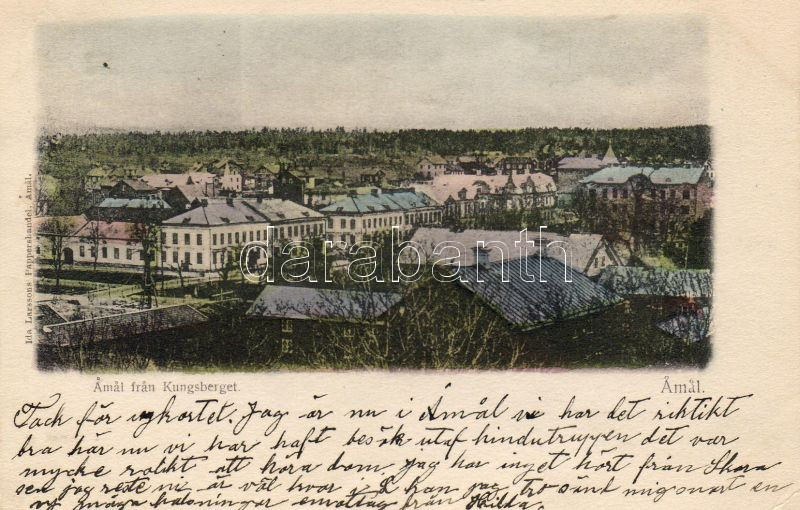 Ida Larssons Pappershandel, Åmål.
darabanth
Åmål från Kungsberget.
Åmål.
Tack för vykortet. Jag är nu i Åmål vi har det riktikt
bra här nu vi har haft besök utaf hindutruppen det var
mycke rolikt att höra dom, jag har inget hört från Skara
sen jag reste ni är väl kvar i kan jag tro sänt mig snart en
många halsningar från Hilda.